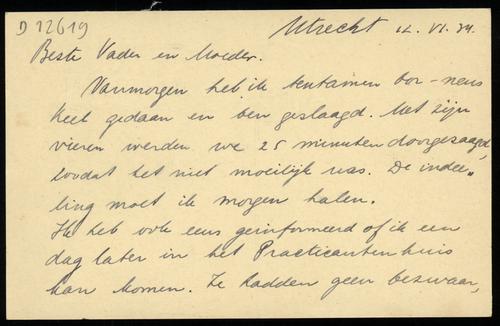 D 12619
Utrecht 12. VI. 34.
Beste Vader en Moeder.
Vanmorgen heb ik tentamen oor-neus
keel gedaan en ben geslaagd. Met zijn
vieren werden we 25 minuten doorgezaagd,
zoodat het niet moeilijk was. De indee„
ling moet ik morgen halen.
Ik heb ook eens geïnformeerd of ik een
dag later in het Practicantenhuis
kan komen. Ze hadden geen bezwaar,